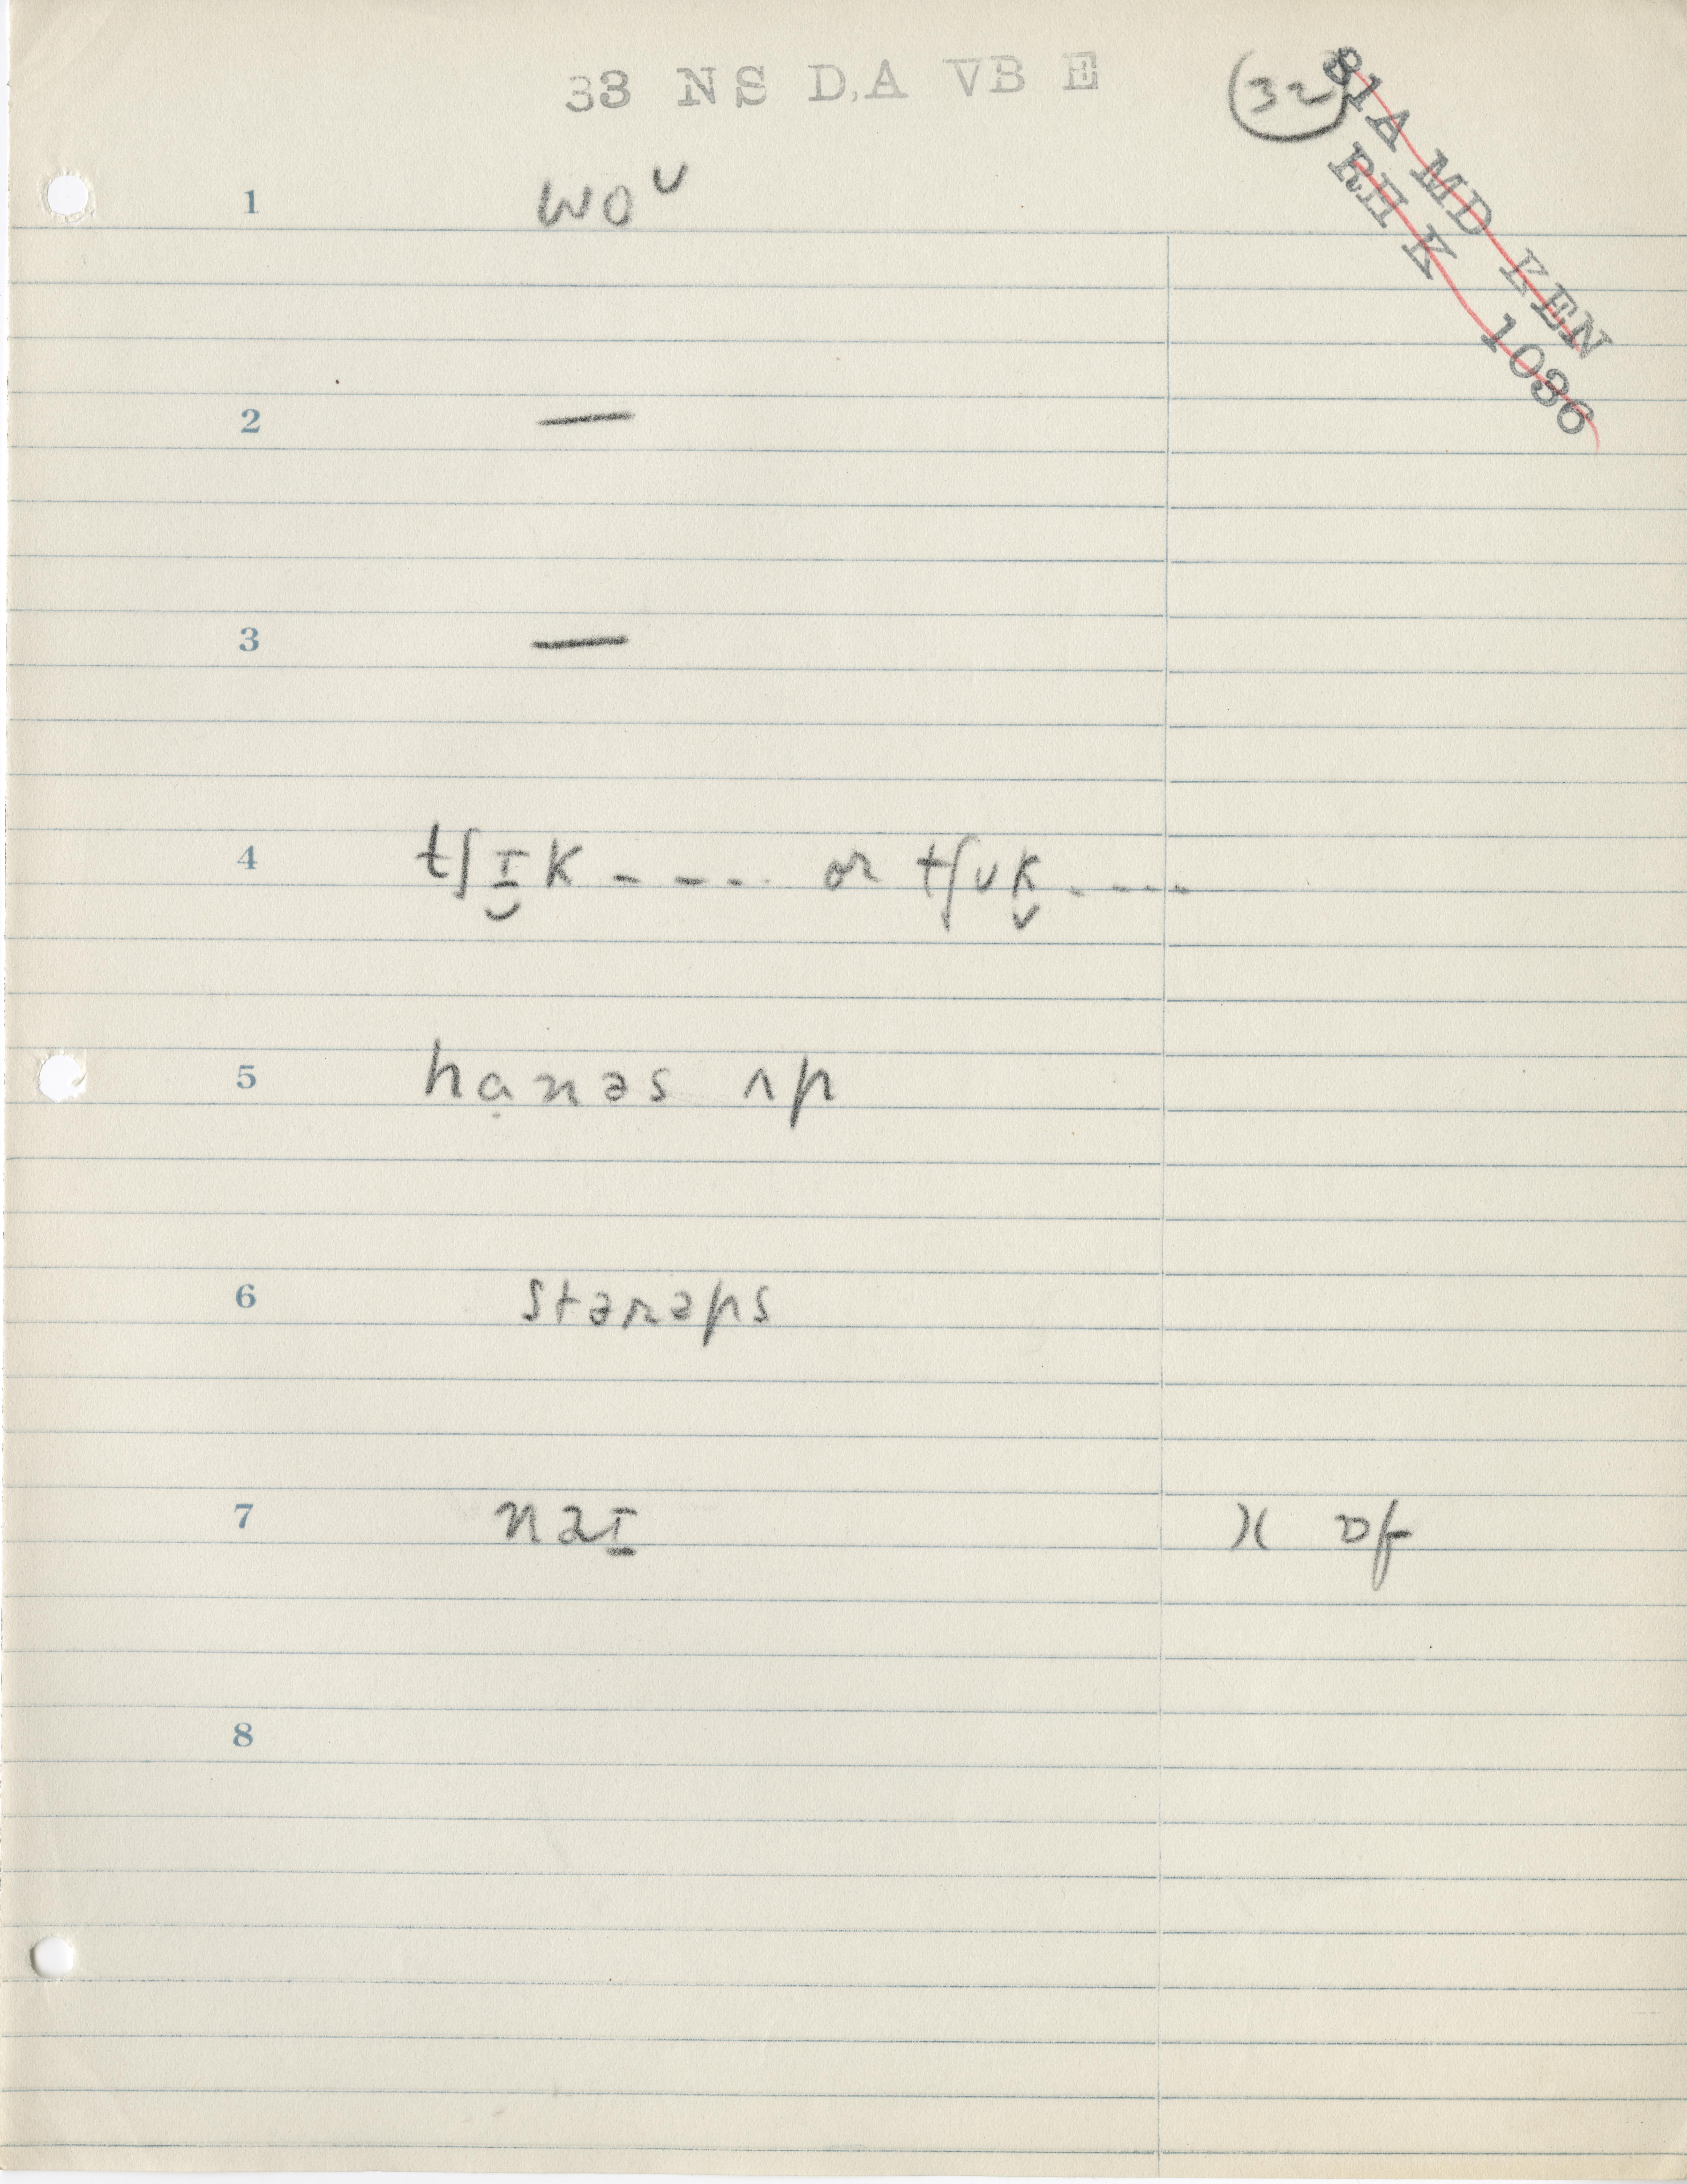 33 NS D,A VB E
(32)
81A MD KEN
RH K 1036
1 woᴜ
2 —
3 —
4 tʃɪ̮k - - - - or tʃʊk̬ - - - -
5 hạnəs ʌp
6 stɜrəps
7 naɪ̠ x of
8